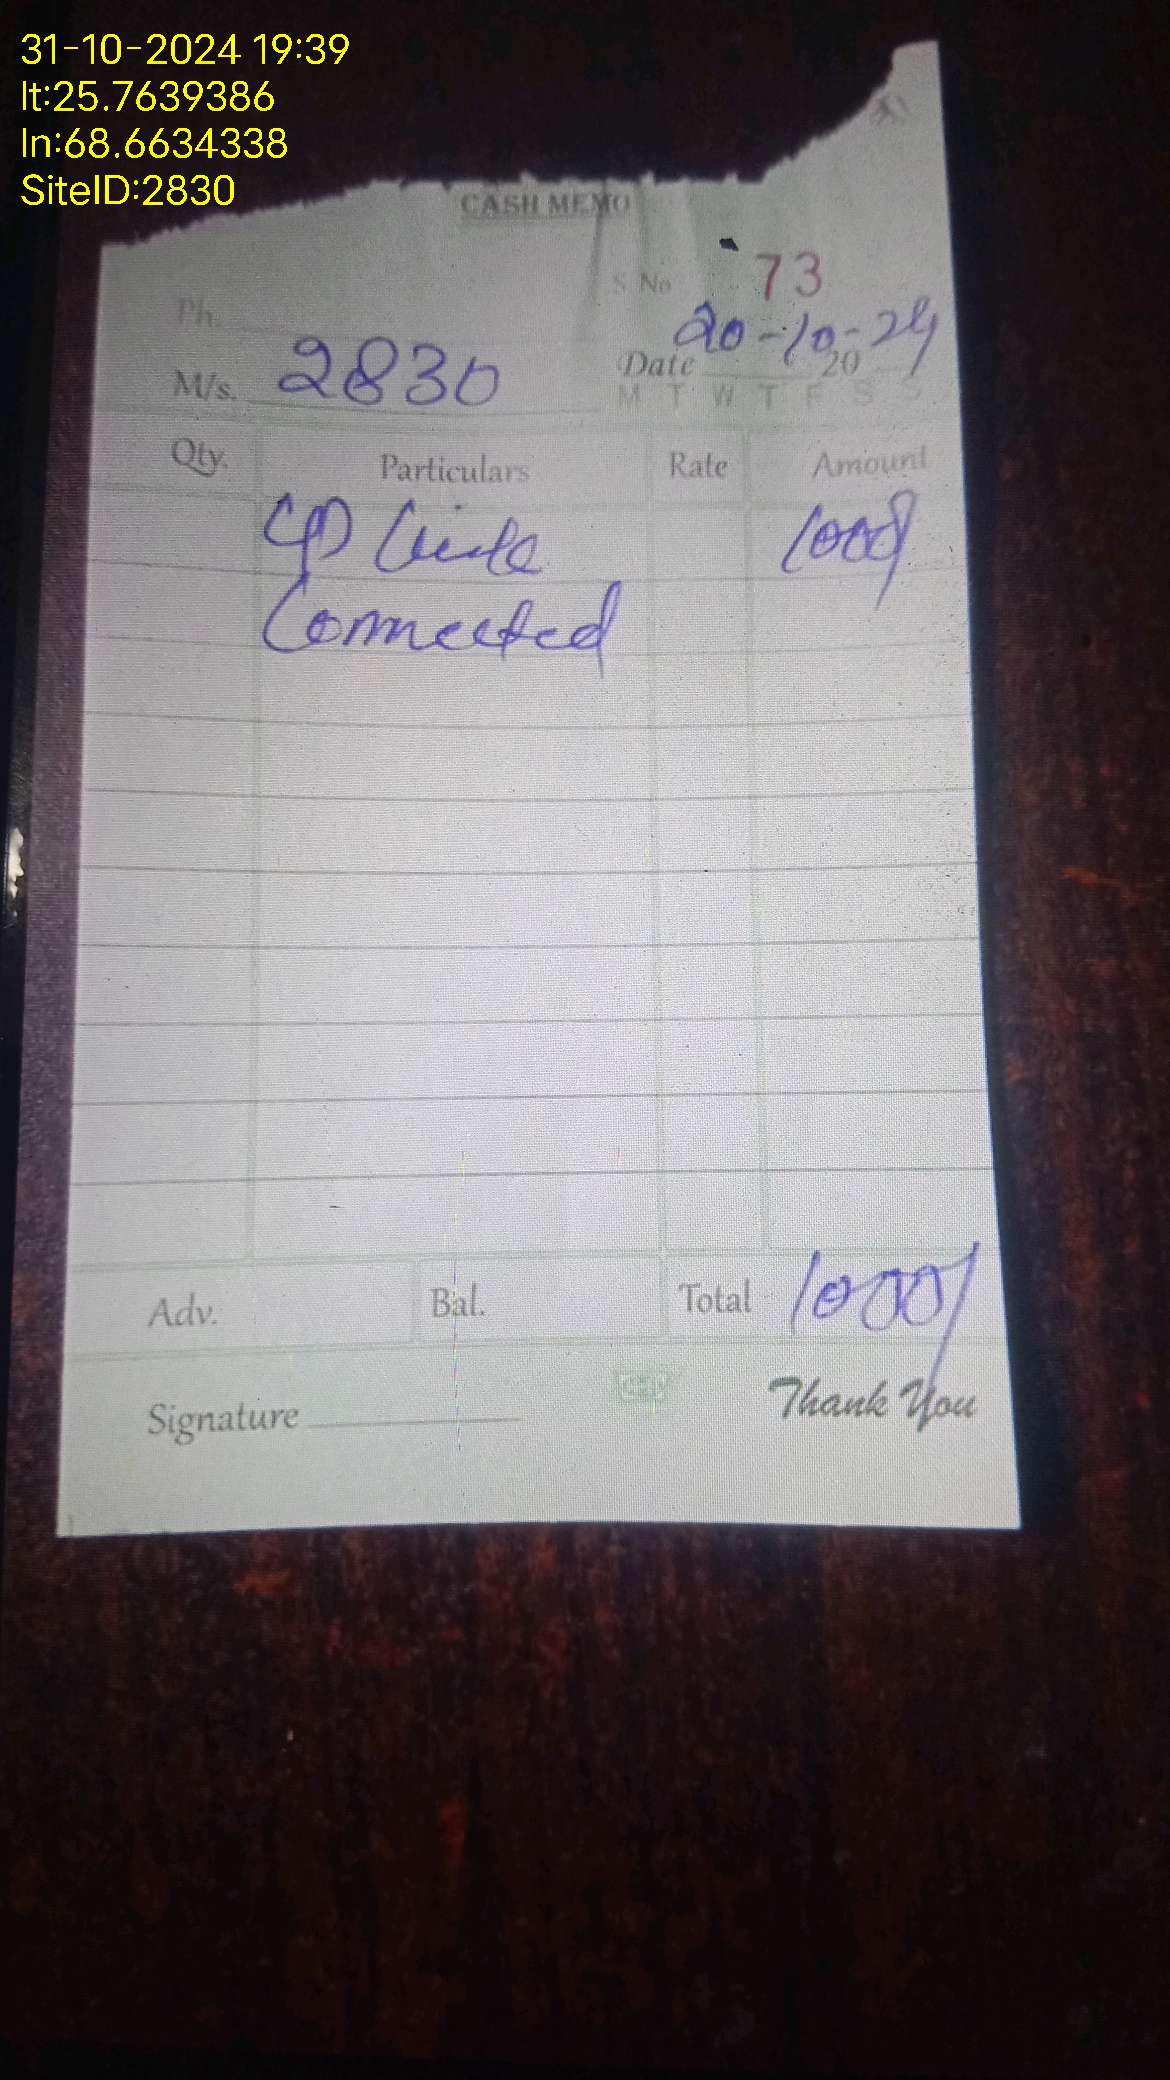 31-10-2024 19:39
lt:25.7639386
ln:68.6634338
SiteID:2830
CASH MEMO
S.No. 73
Ph.
Date 20-10-24 20
M/s. 2830
M T W T F S S
Qty. Particulars Rate Amount
CP 1000/
Connected
Adv. Bal. Total 1000/
Signature
Thank You